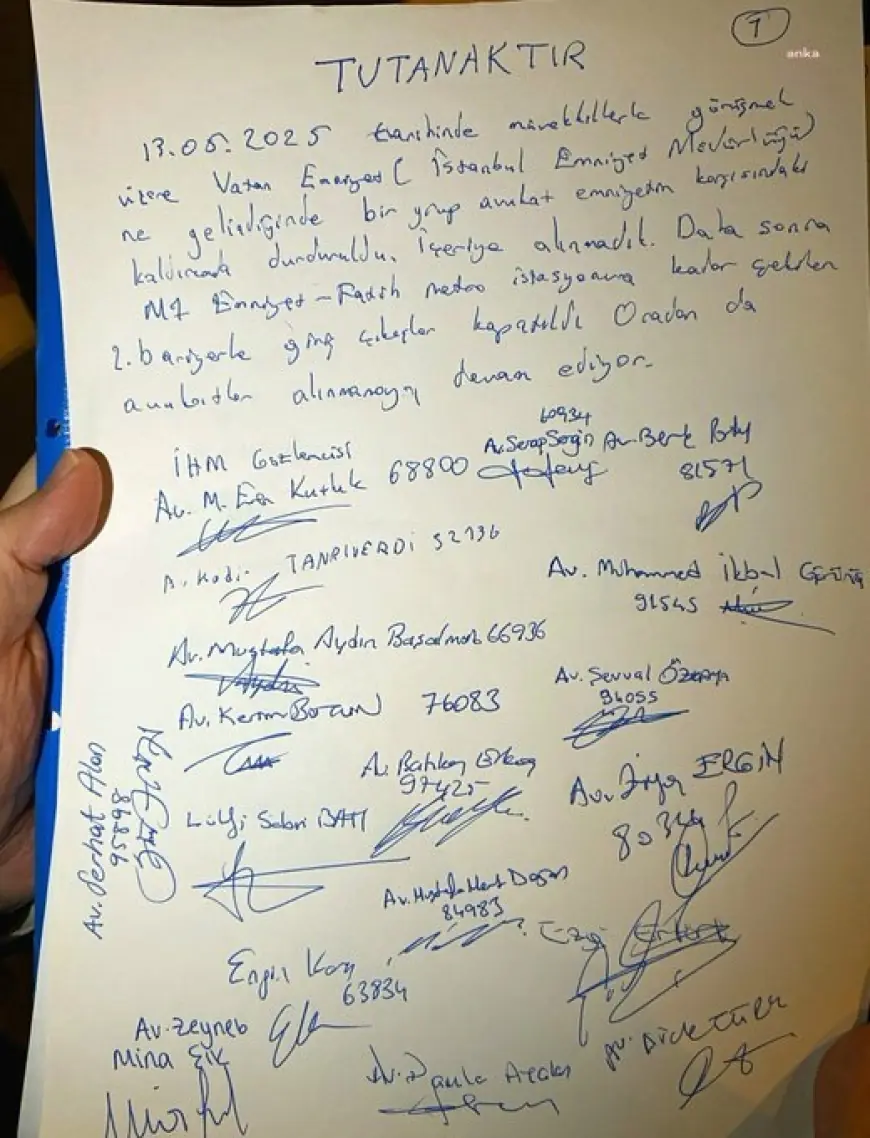 1
anka
TUTANAKTIR
13.05.2025 tarihinde müvekkillerle görüşmek
üzere Vatan Emniyet (İstanbul Emniyet Müdürlüğü)
ne gelindiğinde bir grup avukat emniyetin karşısındaki
kaldırımda durduruldu, İçeriye alınmadık. Daha sonra
M1 Emniyet-Fatih metro istasyonuna kadar çekilen
2. bariyerle giriş çıkışlar kapatıldı Oradan da
avukatlar alınmamaya devam ediyor.
İHM Gözlemcisi
Av. M. Eren Kutluk 68800
60934
Av. Serap Sergin
Av. Berk
81571
Kadir TANRIVERDİ 52736
Av. Muhammed İkbal
91545
Av. Mustafa Aydın 66936
Av. Şevval ÖZKAYA
94055
Av. Kerim 76083
Av. Ferhat Alan
95898
Av. Batıkan
97425
Av. ERGİN
Lütfi Sabri BATI
Av. Mustafa Mert Doğan
84983
Ezgi
Engin Kara
63834
Av. Zeyneb
Mina Elik
Av.
Av. TÜRK